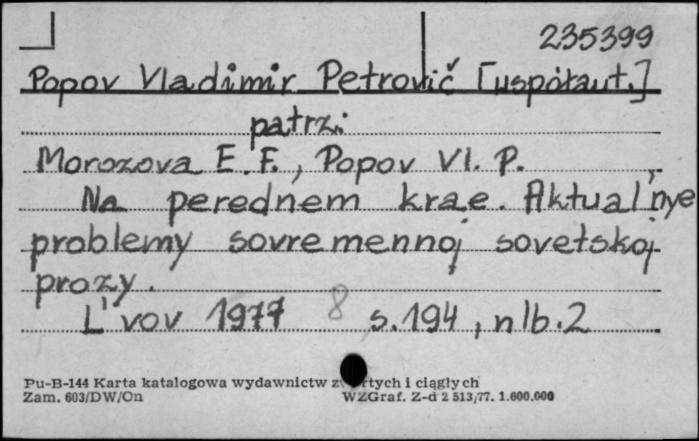 235399
Popov Vladimir Petrovič [współaut.]
patrz:
Morozova E. F., Popov Vl. P.
Na perednem krae. Aktual'nye
problemy sovremennoj sovetskoj
prozy.
L'vov 1977 8 s. 194, nlb. 2
Pu-B-144 Karta katalogowa wydawnictw i ciągłych
Zam. 603/DW/On WZGraf. Z-d 2 513/77. 1.600.000